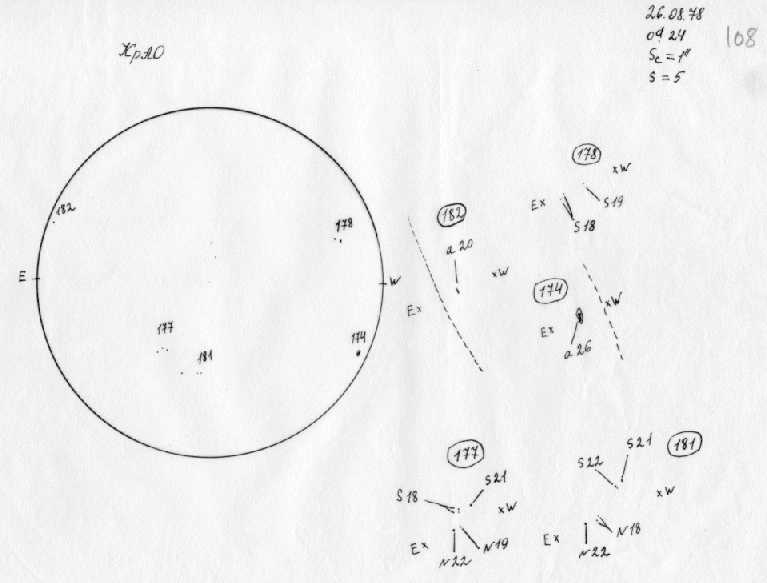 КрАО
26.08.78
09 24
Sc = 1"
S = 5
108
182
178
E
W
177
181
174
182
a 20
xW
Ex
178
xW
Ex
S19
S18
174
xW
Ex
a 26
177
S21
S18
xW
Ex
N22
N19
181
S21
S22
xW
Ex
N22
N18